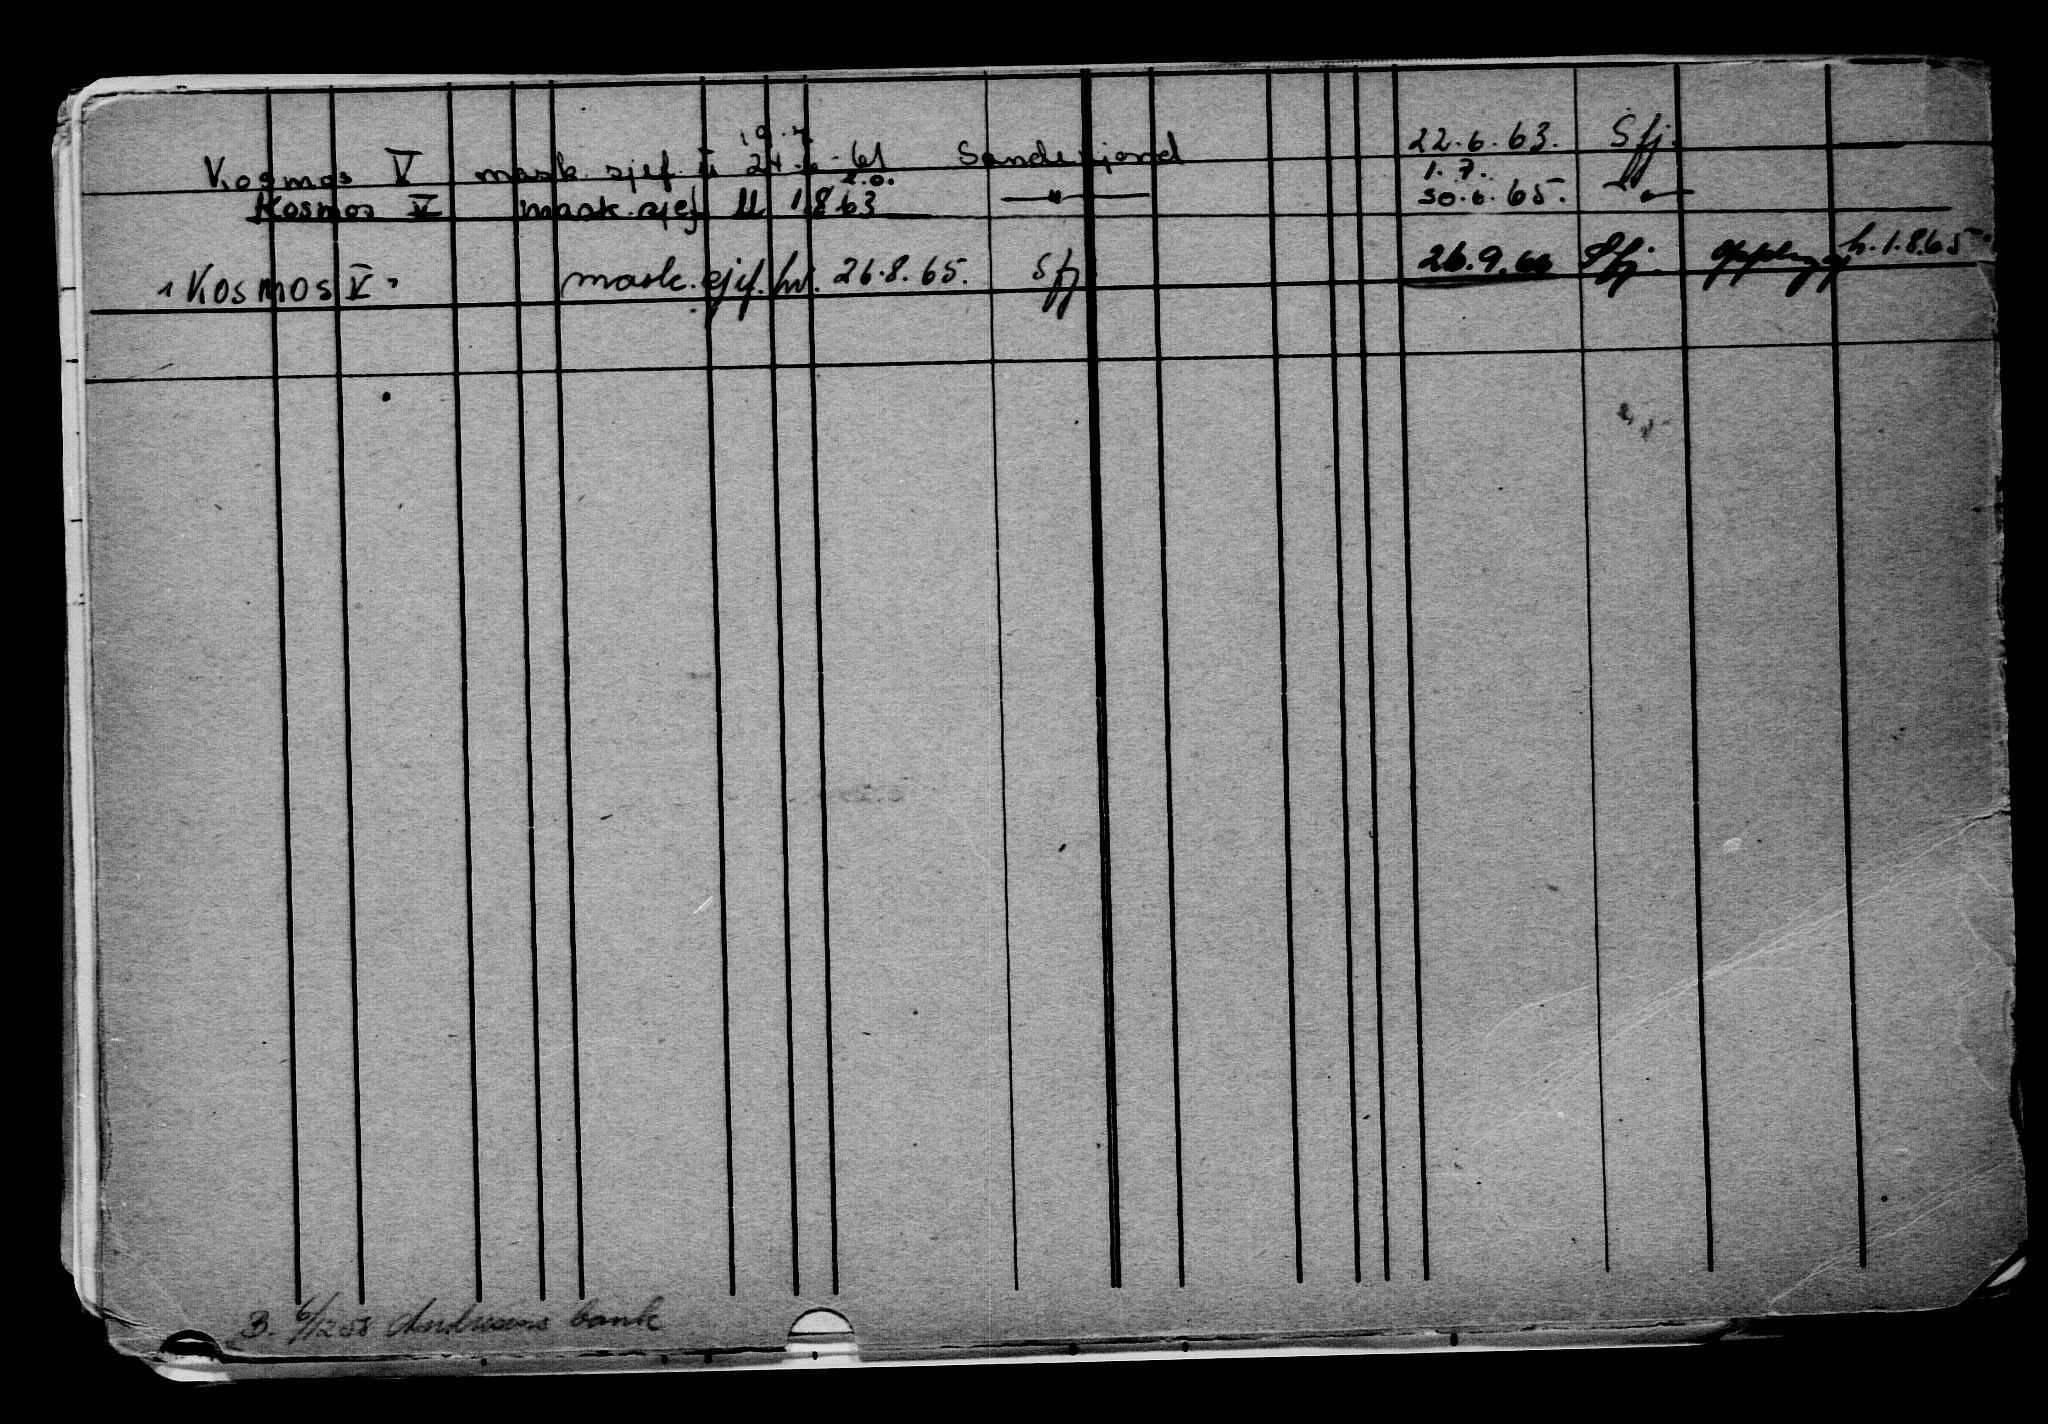 19.7
Kosmos V mask. sjef. ü 24.6.61 Sandefjord 22.6.63. Sfj.
2.0. 1.7.
Kosmos V mask. sjef ü 1.8 63 —"— 30.6.65. —"—
"Kosmos V" mask. sjef. hv. 26.8.65. Sfj 26.9.66 Sfj. h. 1.8.65
B. 6/1255 Andresens bank